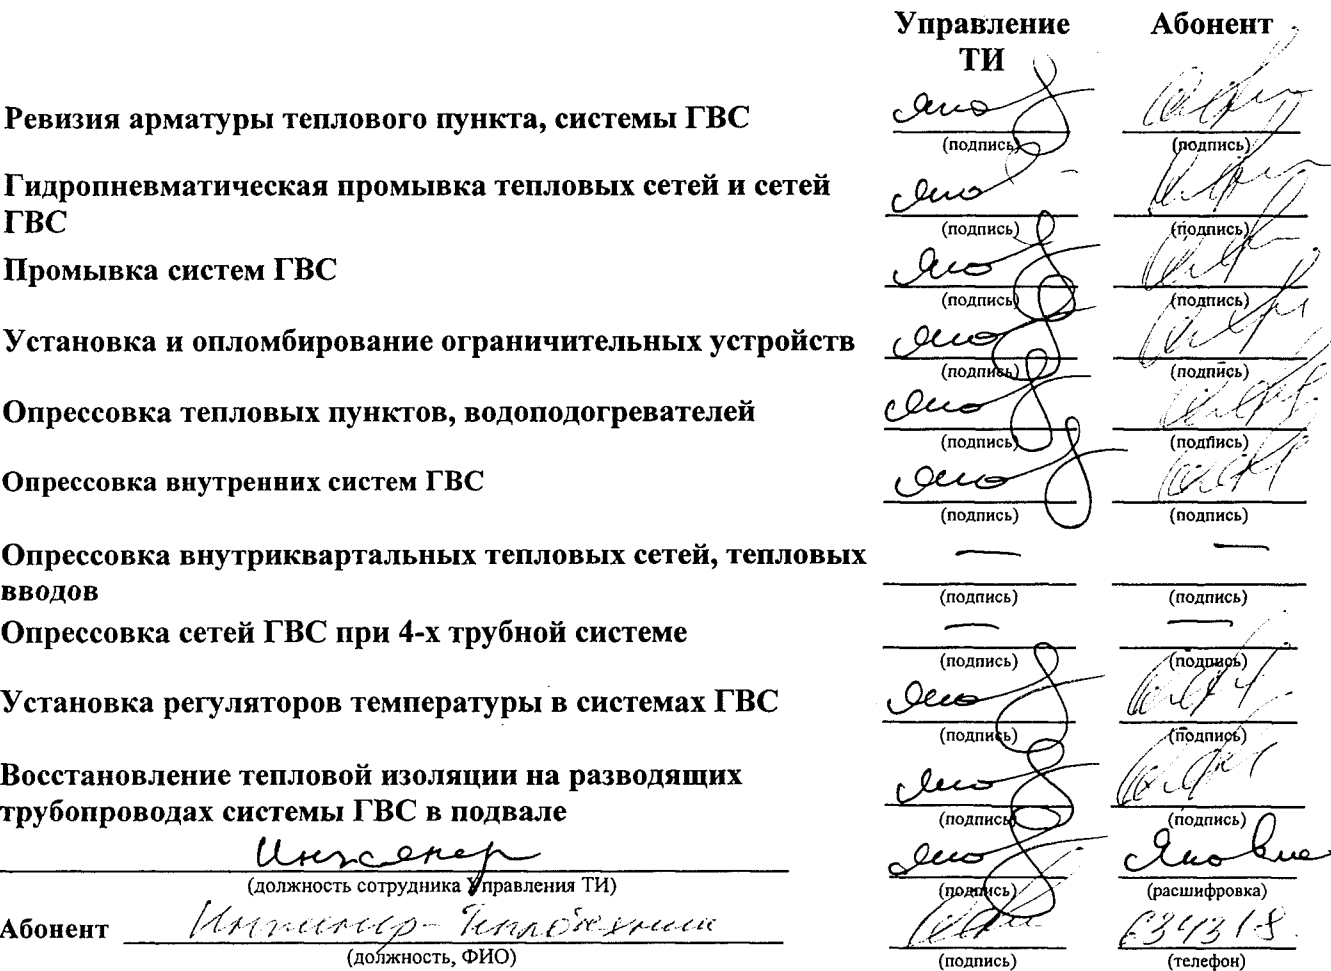 Управление Абонент
ТИ
Ревизия арматуры теплового пункта, системы ГВС
(подпись) (подпись)
Гидропневматическая промывка тепловых сетей и сетей
ГВС
(подпись) (подпись)
Промывка систем ГВС
(подпись) (подпись)
Установка и опломбирование ограничительных устройств
(подпись) (подпись)
Опрессовка тепловых пунктов, водоподогревателей
(подпись) (подпись)
Опрессовка внутренних систем ГВС
(подпись) (подпись)
Опрессовка внутриквартальных тепловых сетей, тепловых — —
вводов
(подпись) (подпись)
Опрессовка сетей ГВС при 4-х трубной системе — —
(подпись) (подпись)
Установка регуляторов температуры в системах ГВС
(подпись) (подпись)
Восстановление тепловой изоляции на разводящих
трубопроводах системы ГВС в подвале
(подпись) (подпись)
Инженер
(должность сотрудника Управления ТИ) (подпись) (расшифровка)
Абонент Инженер-теплотехник 634318
(должность, ФИО) (подпись) (телефон)